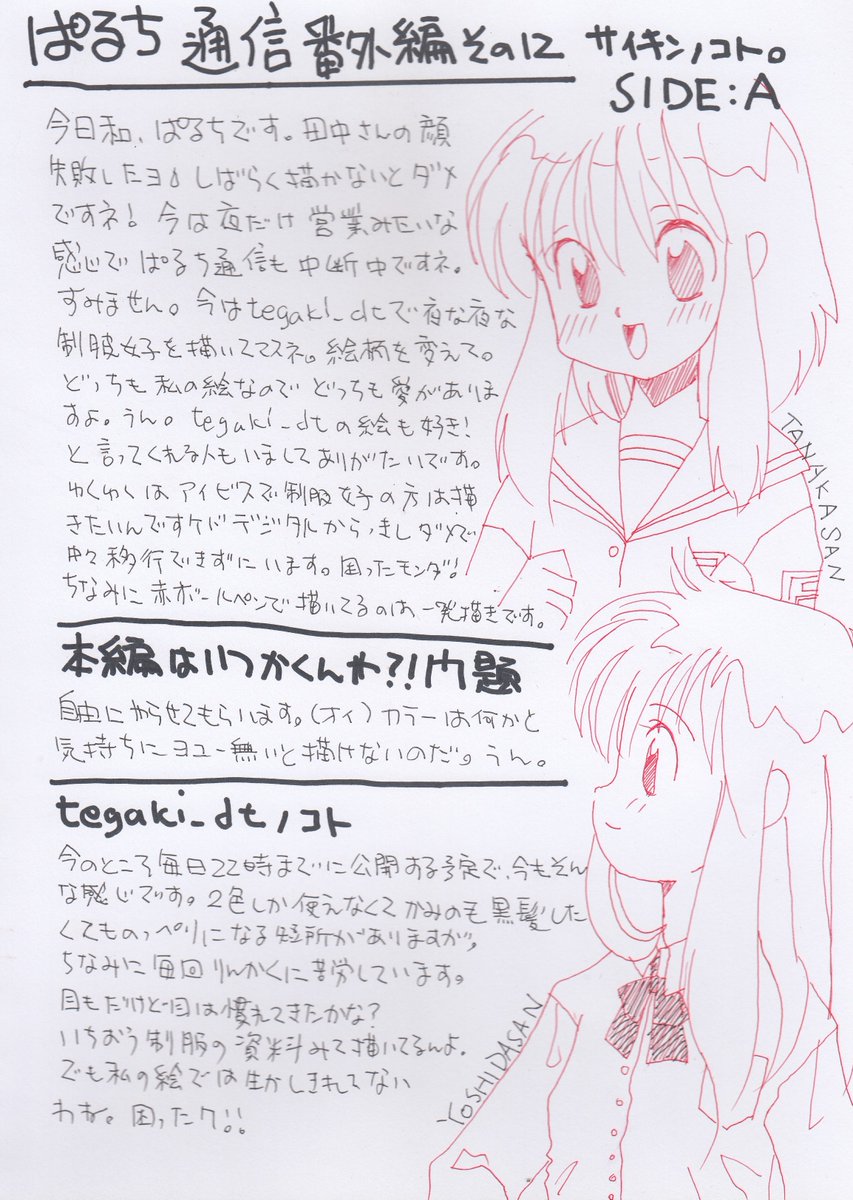 ぱるち通信番外編その12 サイキンノコト。
SIDE:A
今日和、ぱるちです。田中さんの顔
失敗したヨ♪しばらく描かないとダメ
ですネ! 今は夜だけ営業みたいな
感じでぱるち通信も中断中ですネ。
すみません。今はtegaki_dtで夜な夜な
制服女子を描いてマスネ。絵柄を変えて。
どっちも私の絵なのでどっちも愛がありま
すよ。うん。tegaki_dtの絵も好き!
と言ってくれる人もいましてありがたいです。
ゆくゆくはアイビスで制服女子の方は描
きたいんですケドデジタルからっきしダメで
中々移行できずにいます。困ったモンダ!
ちなみに赤ボールペンで描いてるのは一発描きです。
TANAKASAN
本編はいつかくんや?!問題
自由にやらせてもらいます。(オイ)カラーは何かと
気持ちにヨユー無いと描けないのだ。うん。
tegaki_dtノコト
今のところ毎日22時までに公開する予定で、今もそん
な感じです。2色しか使えなくてかみの毛黒髪した
くてものっぺりになる短所がありますが、
ちなみに毎回りんかくに苦労しています。
目もだけど目は慣れてきたかな?
いちおう制服の資料みて描いてるんよ。
でも私の絵では生かしきれてない
わね。困ったワ!!
YOSHIDASAN